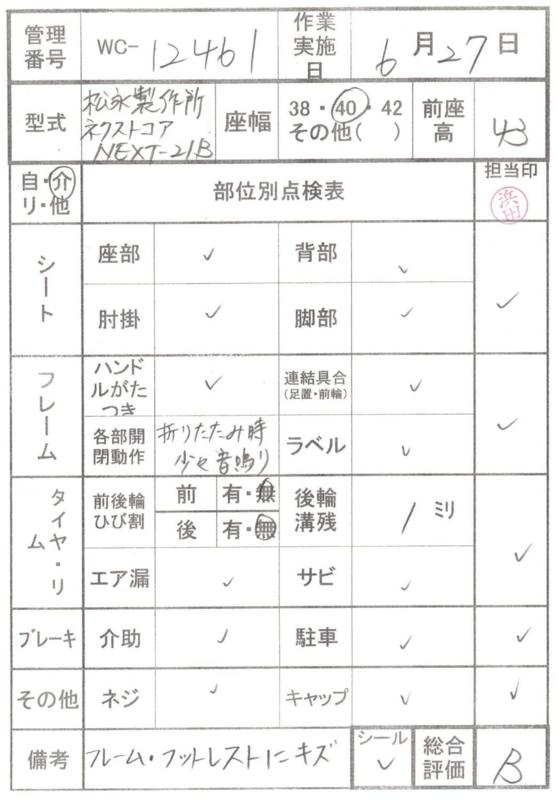 管理番号 WC-12461 作業実施日 6月27日
型式 松永製作所 ネクストコア NEXT-21B 座幅 38・40・42 その他( ) 前座高 43
自・介 リ・他 部位別点検表 担当印 浜田
シート 座部 ✓ 背部 ✓ ✓
肘掛 ✓ 脚部 ✓
フレーム ハンドルがたつき ✓ 連結具合 (足置・前輪) ✓ ✓
各部開閉動作 折りたたみ時 少々音鳴り ラベル ✓
タイヤ・リム 前後輪ひび割 前 有・無 後輪溝残 1 ミリ ✓
後 有・無
エア漏 ✓ サビ ✓
ブレーキ 介助 ✓ 駐車 ✓ ✓
その他 ネジ ✓ キャップ ✓ ✓
備考 フレーム・フットレストにキズ シール ✓ 総合評価 B